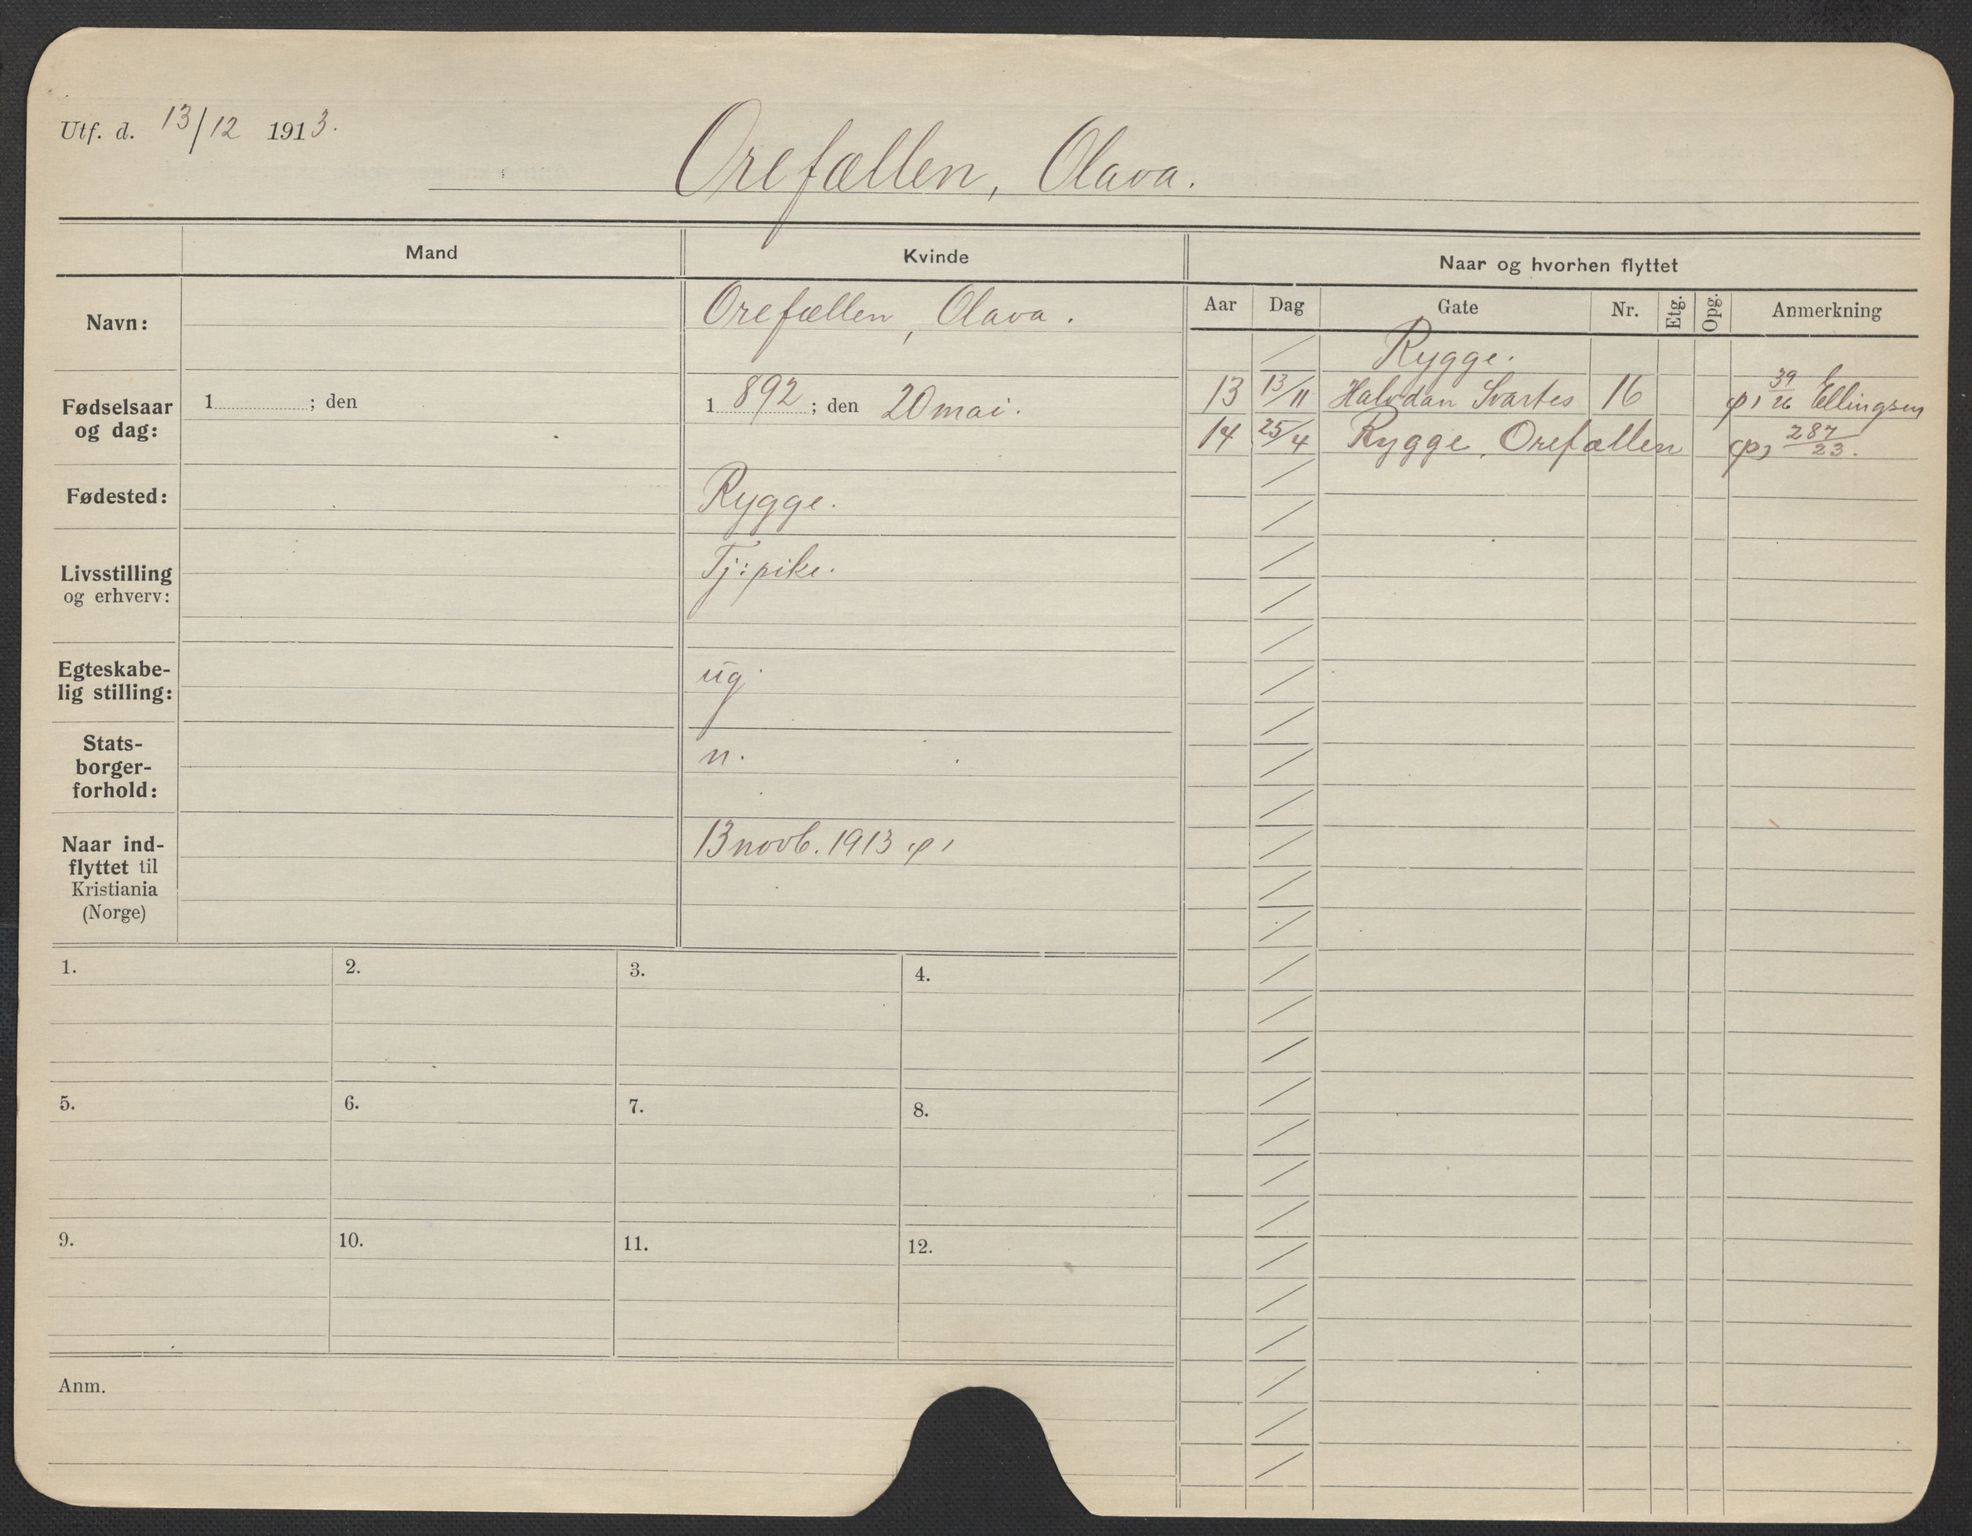 Utf. d. 13/12 1913.
Orefællen, Olava.
Mand
Kvinde
Naar og hvorhen flyttet
Aar Dag Gate Nr. Etg. Opg. Anmerkning
Navn:
Orefællen, Olava.
Rygge.
Fødselsaar
og dag:
1 ; den
1 892 ; den 20 mai.
13 13/11 Halvdan Svartes 16 39/26 Ellingsen
14 25/4 Rygge, Orefællen 287/23.
Fødested:
Rygge.
Livsstilling
og erhverv:
Tj: pike.
Egteskabe-
lig stilling:
ug.
Stats-
borger-
forhold:
n.
Naar ind-
flyttet til
Kristiania
(Norge)
13 novb. 1913
1. 2. 3. 4.
5. 6. 7. 8.
9. 10. 11. 12.
Anm.